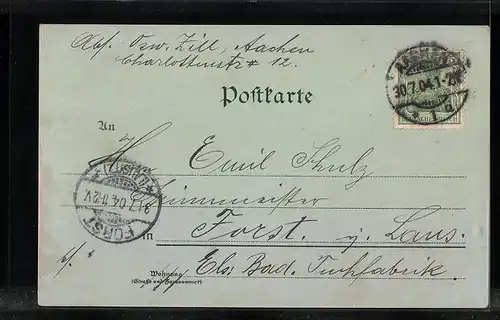 Abs. Osw. Zill, Aachen
Charlottenstr. 12.
Postkarte
30.7.04.1-2N
An
H. Emil Schulz
FORST
(LAUSITZ)
31.7.04.11-12V.
in Forst. i. Laus.
Wohnung
(Straße und Hausnummer)
Els. Bad. Tuchfabrik.